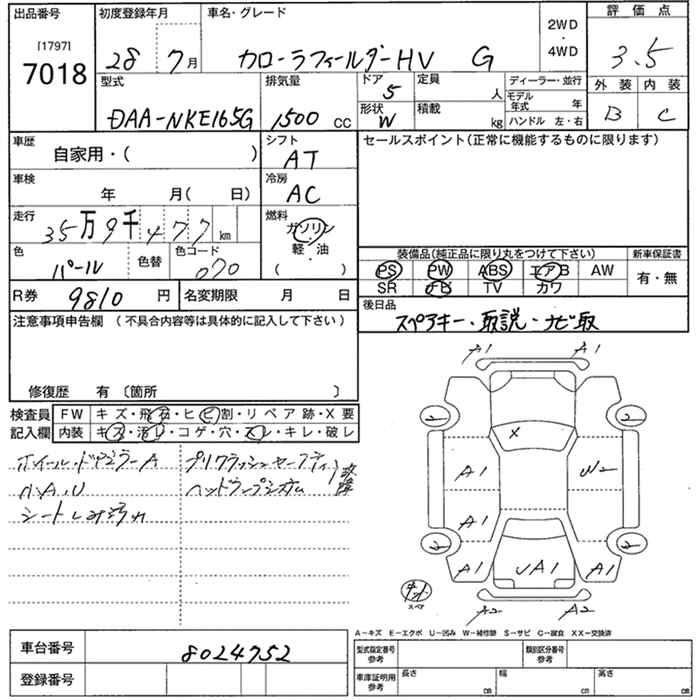 出品番号 初度登録年月 車名・グレード 2WD・4WD 評価点
[1797] 7018 28 7月 カローラフィールダーHV G 3.5
型式 排気量 ドア 5 定員 人 ディーラー・並行 外装 内装
DAA-NKE165G 1500 CC 形状 W 積載 kg モデル年式 年 ハンドル 左・右 B C
車歴 自家用・( ) シフト AT セールスポイント(正常に機能するものに限ります)
車検 年 月( 日) 冷房 AC
走行 35万9千477km 燃料 ガソリン・軽・油 ( )
装備品(純正品に限り丸をつけて下さい) 新車保証書
色 パール 色替 色コード 070 PS PW ABS エアB AW 有・無
SR ナビ TV カワ
R券 9810円 名変期限 月 日 後日品
スペアキー・取説・ナビ取
注意事項申告欄 (不具合内容等は具体的に記入して下さい)
修復歴 有 〔箇所 〕
検査員記入欄 FW キズ・飛石・ヒビ割・リペア跡・X要
内装 キズ・汚レ・コゲ・穴・スレ・キレ・破レ
ホイール・ドアミラーA プリクラッシュセーフティ
小A.U ヘッドランプシステム 故障
シート
A1 A1
2 2
X
A1 W2
A1
2 2
A1 UA1 A1
スペア
A2 A2
A-キズ E-エクボ U-凹み W-補修跡 S-サビ C-腐食 XX-交換済
車台番号 8024752 型式指定番号 参考 類別区分番号 参考
登録番号 車庫証明用 参考 長さ cm 幅 cm 高さ cm